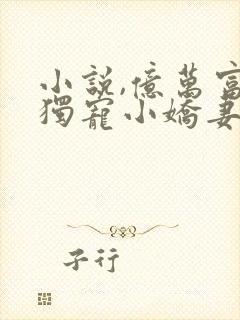 小說,億萬富
獨寵小嬌妻
子行